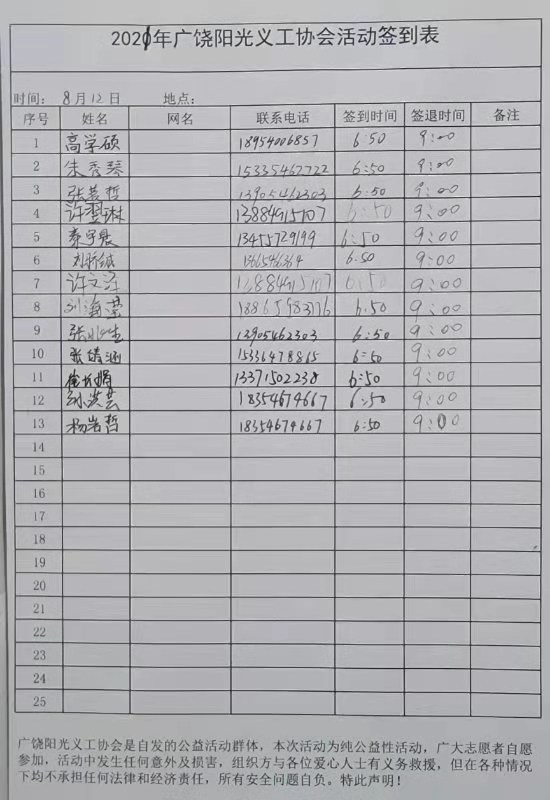 2021年广饶阳光义工协会活动签到表
时间： 8月12日 地点：
序号 姓名 网名 联系电话 签到时间 签退时间 备注
1 高学硕 18954006857 6:50 9:00
2 朱秀琴 15335467722 6:50 9:00
3 张芸哲 13905462303 6:50 9:00
4 许翌琳 13884915107 6:50 9:00
5 秦宇晨 13455729199 6:50 9:00
6 6:50 9:00
7 许文泽 13884915107 6:50 9:00
8 刘海莹 18865983776 6:50 9:00
9 13905462303 6:50 9:00
10 张靖涵 15336478865 6:50 9:00
11 13371502238 6:50 9:00
12 孙洪芸 18354674667 6:50 9:00
13 杨岩哲 18354674667 6:50 9:00
14
15
16
17
18
19
20
21
22
23
24
25
广饶阳光义工协会是自发的公益活动群体，本次活动为纯公益性活动，广大志愿者自愿
参加，活动中发生任何意外及损害，组织方与各位爱心人士有义务救援，但在各种情况
下均不承担任何法律和经济责任，所有安全问题自负。特此声明！